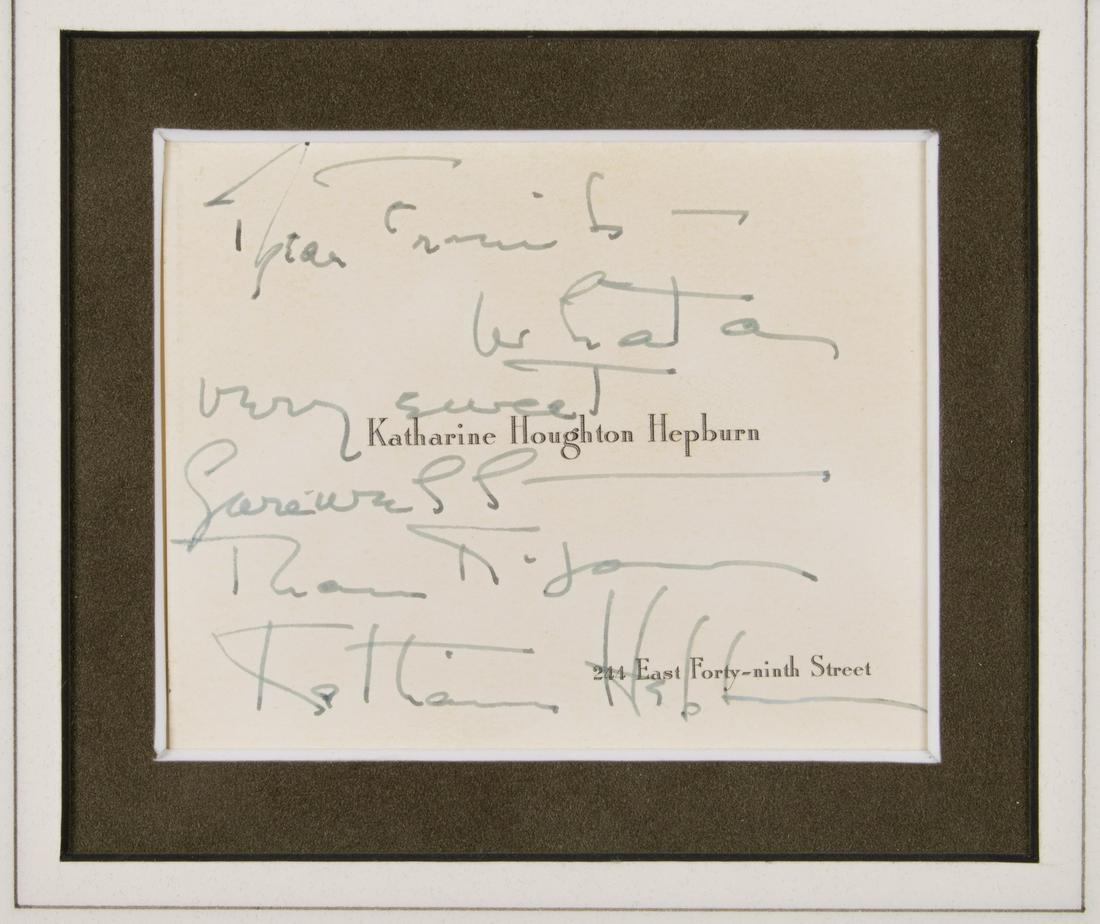 Dear
What a
very sweet
Katharine Houghton Hepburn
Farewell —
Thank you
Katharine Hepburn
244 East Forty-ninth Street